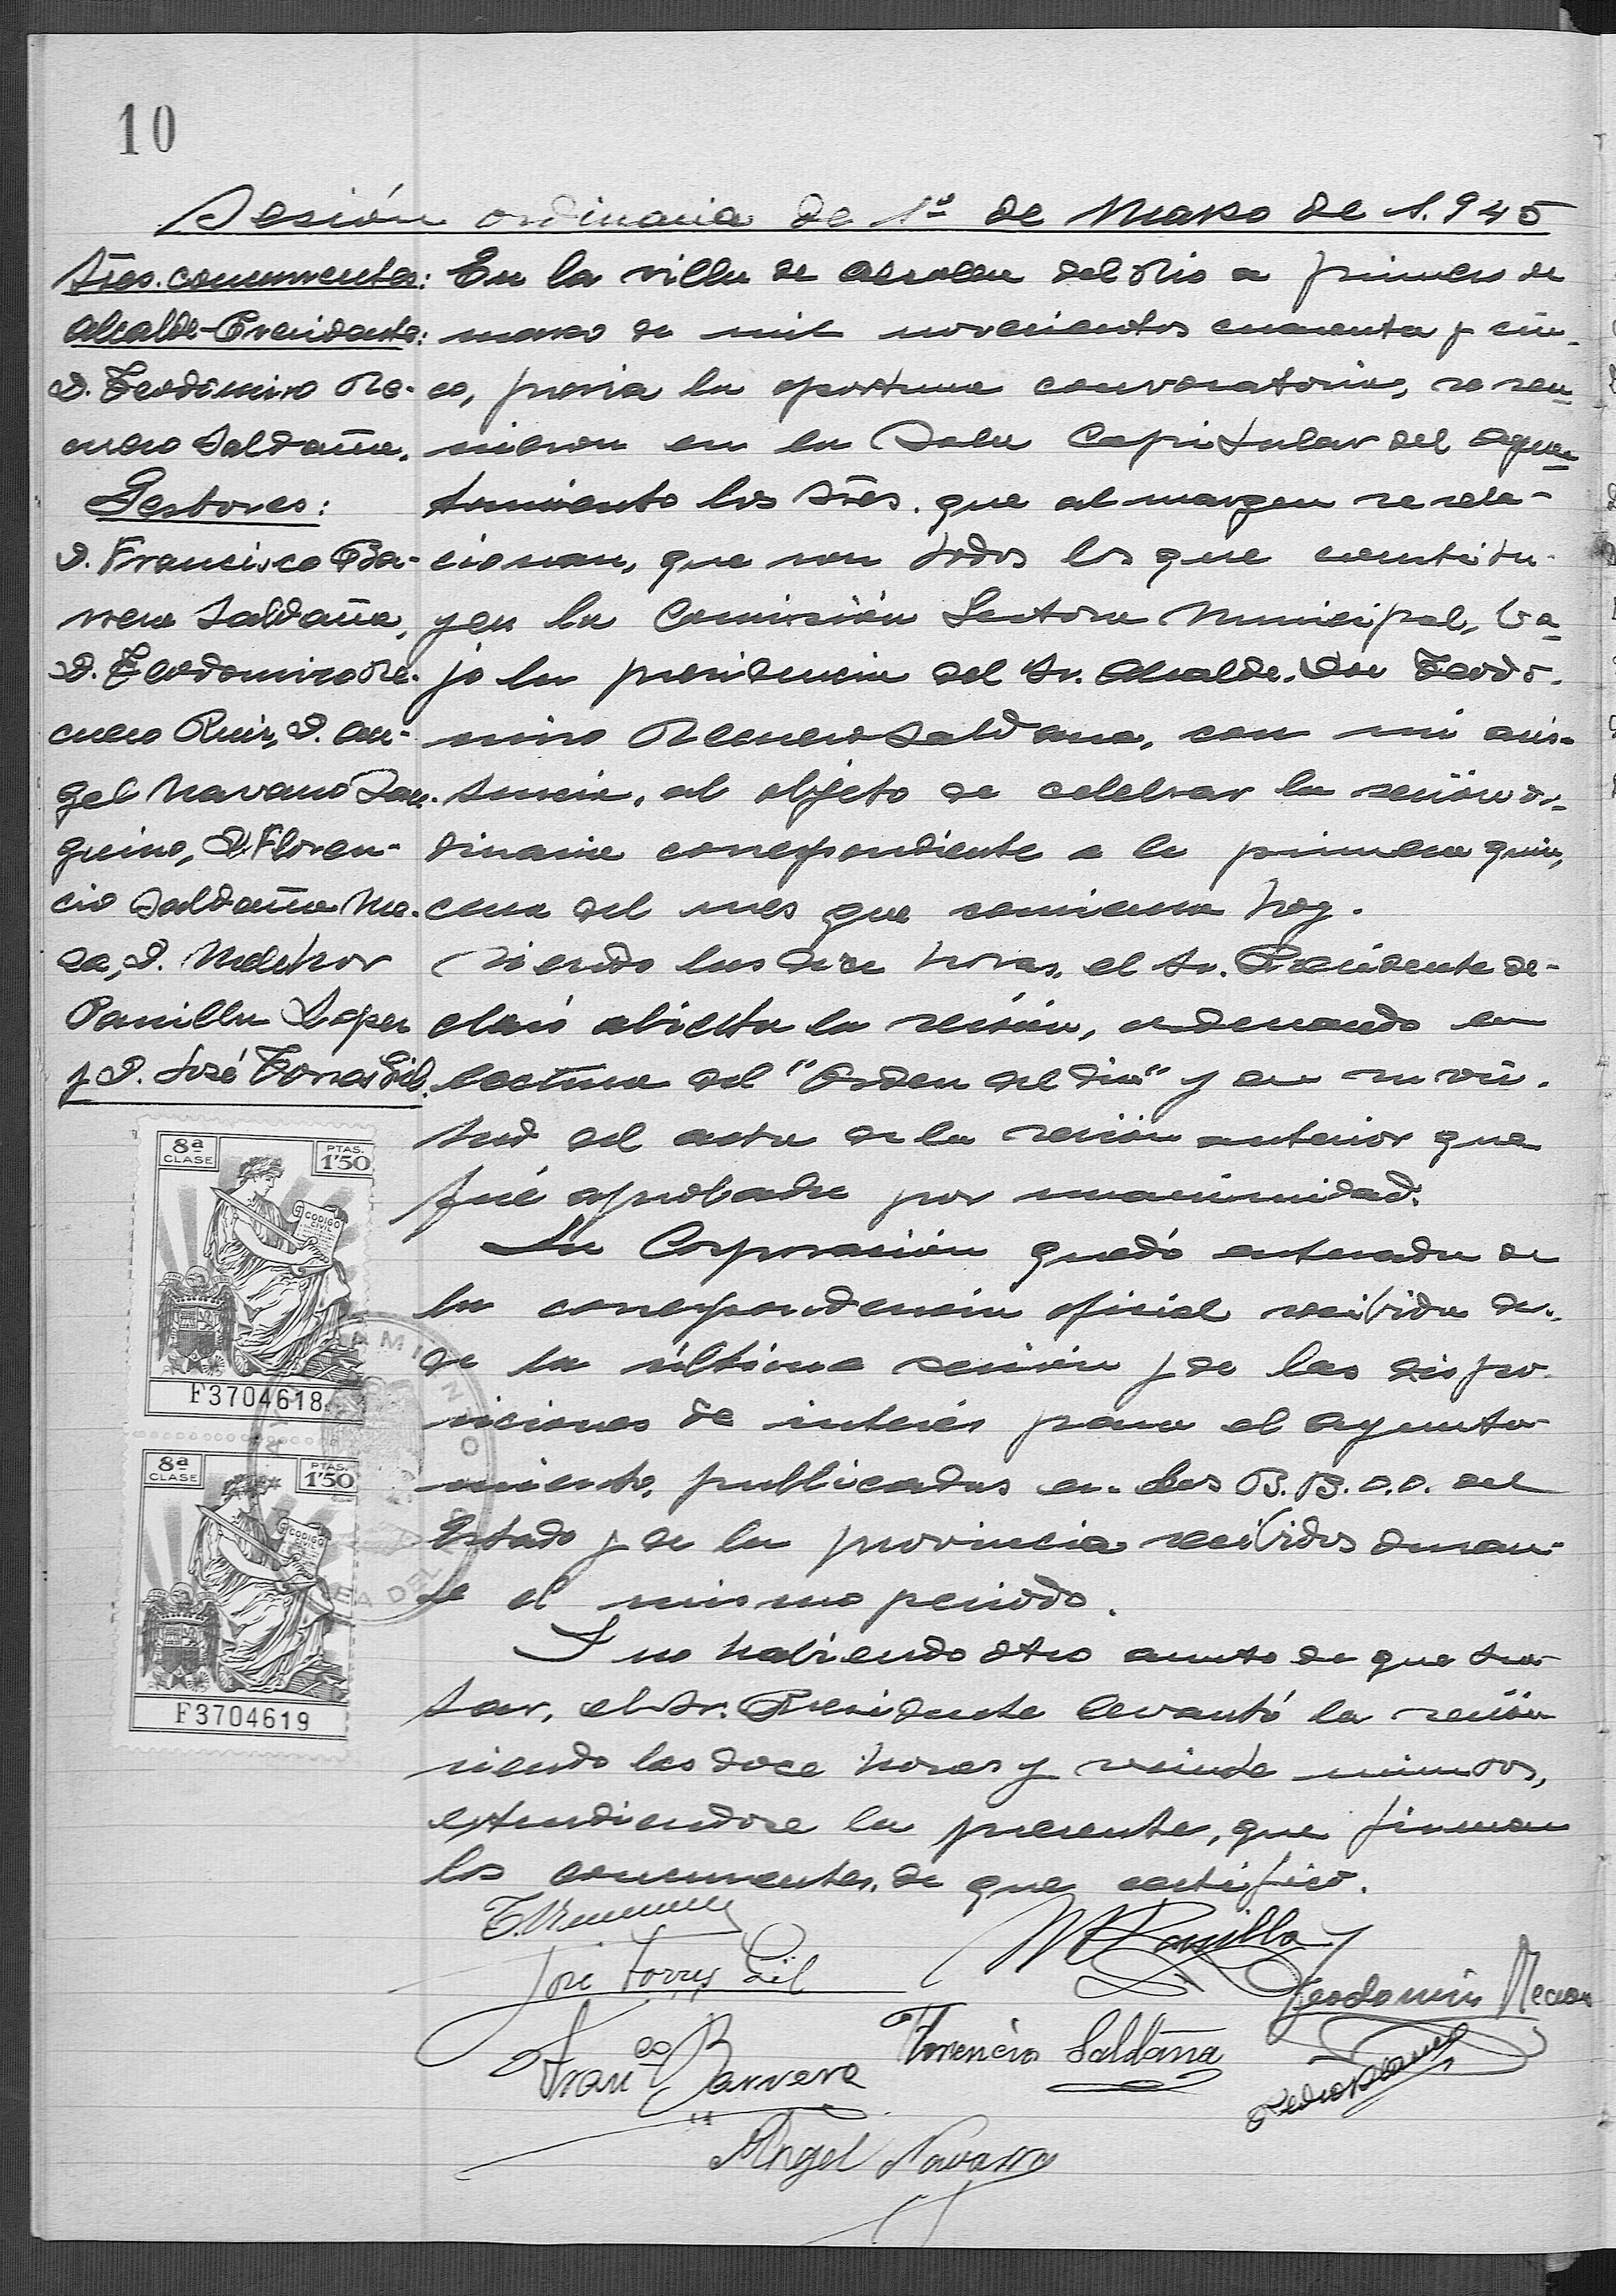 10
Sesión ordinaria de 1º de Marzo de 1.945
Sres. concurrentes:
Alcalde-Presidente:
D. Teodomiro Re-
cuero Saldaña.
Gestores:
D. Francisco Ba-
rrera Saldaña,
D. Teodomiro Re-
cuero Ruiz, D. An-
gel Navarro San-
guino, D. Floren-
cio Saldaña Me-
sa, D. Melchor
Panilla Lopez
y D. José Torres Gil.
En la villa de Alcolea del Rio a primero de
marzo de mil novecientos cuarenta y cin-
co, previa la oportuna convocatoria, se reu-
nieron en la Sala Capitular del Ayun-
tamiento los Sres. que al margen se rela-
cionan, que son todos los que constitu-
yen la Comisión Gestora Municipal, ba-
jo la presidencia del Sr. Alcalde, Don Teodo-
miro Recuero Saldaña, con mi asis-
tencia, al objeto de celebrar la sesión or-
dinaria correspondiente a la primera quin-
cena del mes que comienza hoy.
Siendo las doce horas, el Sr. Presidente de-
claró abierta la sesión, ordenando la
lectura del "Orden del dia" y en su vir-
tud del acta de la sesión anterior que
fué aprobada por unanimidad.
La Corporación quedó enterada de
la correspondencia oficial recibida des-
de la última sesión y de las dispo-
siciones de interés para el Ayunta-
miento, publicadas en los B.B.O.O. del
Estado y de la provincia recibidos duran-
te el mismo periodo.
Y no habiendo otro asunto de que tra-
tar, el Sr. Presidente levantó la sesión
siendo las doce horas y veinte minutos,
extendiendose la presente, que firman
los concurrentes, de que certifico.
8ª CLASE
PTAS. 1'50
CODIGO CIVIL
F3704618
8ª CLASE
PTAS. 1'50
CODIGO CIVIL
F3704619
José Torres Gil
M Panilla
Teodomiro Recuero
Franco Barrera
Florencio Saldaña
Angel Navarro